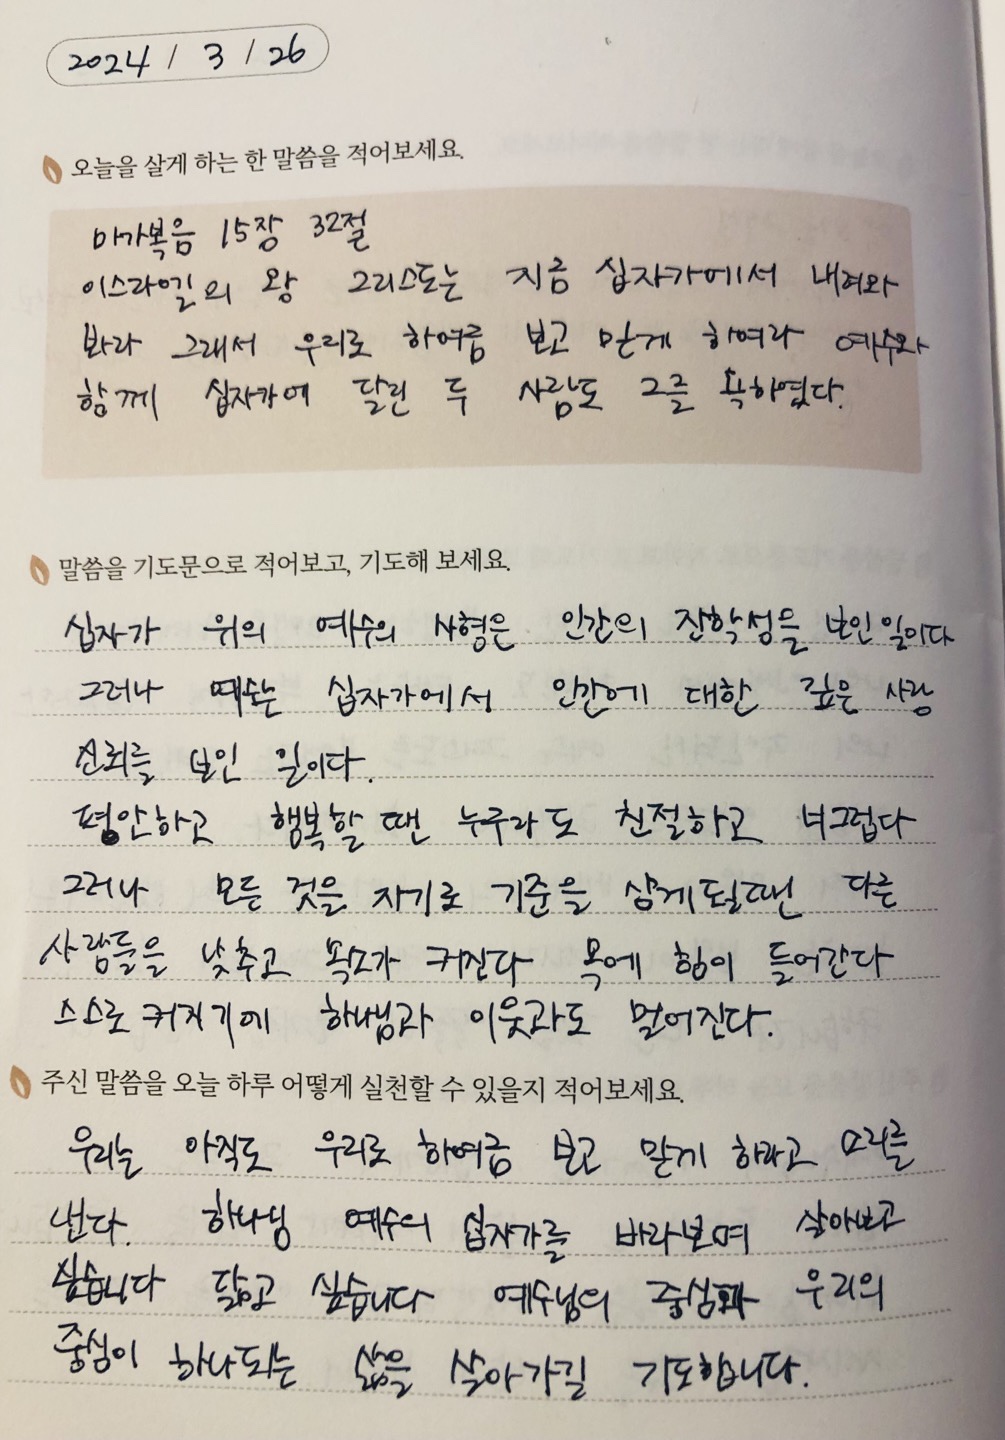 2024 / 3 / 26
오늘을 살게 하는 한 말씀을 적어보세요.
마가복음 15장 32절
이스라엘의 왕 그리스도는 지금 십자가에서 내려와
봐라 그래서 우리로 하여금 보고 믿게 하여라 예수와
함께 십자가에 달린 두 사람도 그를 욕하였다.
말씀을 기도문으로 적어보고, 기도해 보세요.
십자가 위의 예수의 사형은 인간의 잔학성을 보인 일이다
그러나 예수는 십자가에서 인간에 대한 깊은 사랑
신뢰를 보인 일이다.
평안하고 행복할 땐 누구라도 친절하고 너그럽다
그러나 모든 것을 자기로 기준을 삼게될땐 다른
사람들을 낮추고 목소가 커진다 목에 힘이 들어간다
스스로 커지기에 하나님과 이웃과도 멀어진다.
주신 말씀을 오늘 하루 어떻게 실천할 수 있을지 적어보세요.
우리는 아직도 우리로 하여금 보고 믿게 하라고 소리를
낸다. 하나님 예수의 십자가를 바라보며 살아보고
싶습니다 닮고 싶습니다 예수님의 중심과 우리의
중심이 하나되는 삶을 살아가길 기도합니다.